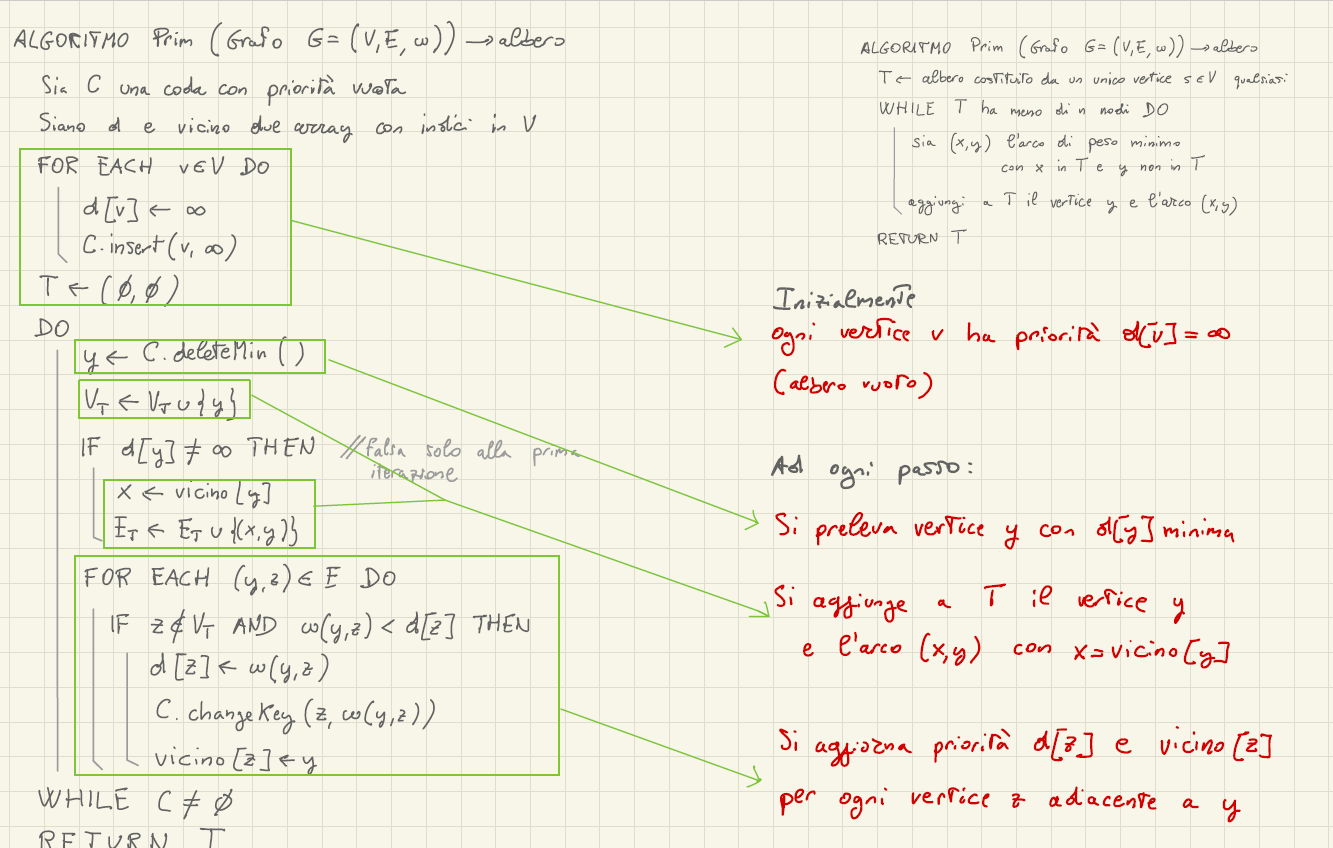 ALGORITMO Prim (Grafo G=(V,E,ω)) → albero
Sia C una coda con priorità vuota
Siano d e vicino due array con indici in V
FOR EACH v∈V DO
d[v] ← ∞
C.insert(v, ∞)
T ← (∅,∅)
DO
y ← C.deleteMin()
V_T ← V_T ∪ {y}
IF d[y] ≠ ∞ THEN //falsa solo alla prima
iterazione
x ← vicino[y]
E_T ← E_T ∪ {(x,y)}
FOR EACH (y,z) ∈ E DO
IF z ∉ V_T AND ω(y,z) < d[z] THEN
d[z] ← ω(y,z)
C.changeKey(z, ω(y,z))
vicino[z] ← y
WHILE C ≠ ∅
RETURN T
ALGORITMO Prim (Grafo G=(V,E,ω)) → albero
T ← albero costituito da un unico vertice s∈V qualsiasi
WHILE T ha meno di n nodi DO
sia (x,y) l'arco di peso minimo
con x in T e y non in T
aggiungi a T il vertice y e l'arco (x,y)
RETURN T
Inizialmente
ogni vertice v ha priorità d[v] = ∞
(albero vuoto)
Ad ogni passo:
Si preleva vertice y con d[y] minima
Si aggiunge a T il vertice y
e l'arco (x,y) con x=vicino[y]
Si aggiorna priorità d[z] e vicino[z]
per ogni vertice z adiacente a y